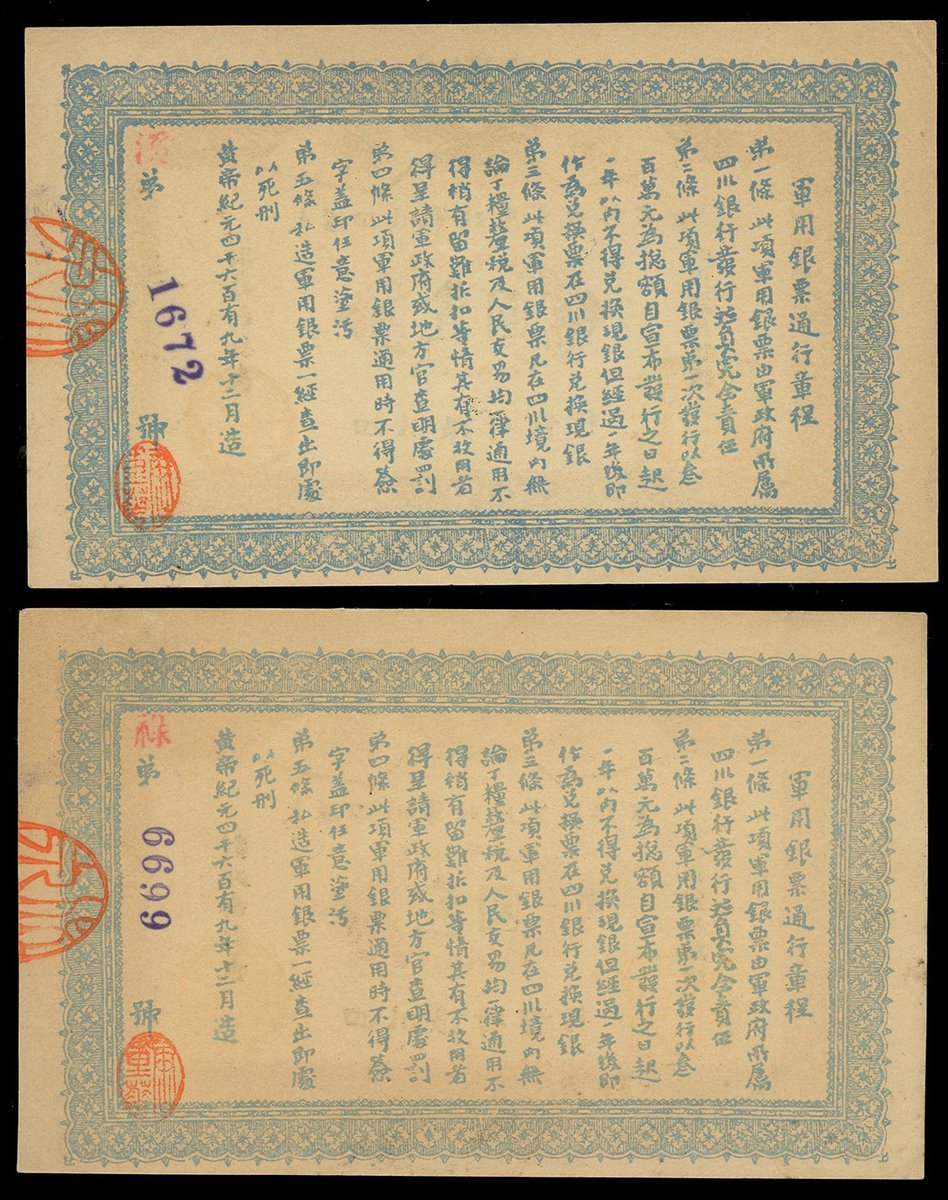 軍用銀票通行章程
第一條 此項軍用銀票由軍政府所屬
四川銀行發行並負完全責任
第二條 此項軍用銀票第一次發行以叁
百萬元為總額自宣布發行之日起
一年以內不得兌換現銀但經過一年後即
作為兌換票在四川銀行兌換現銀
第三條 此項軍用銀票凡在四川境內無
論丁糧釐税及人民交易均一律通用不
得稍有留難折扣等情其有不收用者
得呈請軍政府或地方官查明處罰
第四條 此項軍用銀票通用時不得簽
字蓋印任意塗污
第五條 私造軍用銀票一經查出即處
以死刑
黃帝紀元四千六百有九年十二月造
漢第 1672 號
軍用銀票通行章程
第一條 此項軍用銀票由軍政府所屬
四川銀行發行並負完全責任
第二條 此項軍用銀票第一次發行以叁
百萬元為總額自宣布發行之日起
一年以內不得兌換現銀但經過一年後即
作為兌換票在四川銀行兌換現銀
第三條 此項軍用銀票凡在四川境內無
論丁糧釐税及人民交易均一律通用不
得稍有留難折扣等情其有不收用者
得呈請軍政府或地方官查明處罰
第四條 此項軍用銀票通用時不得簽
字蓋印任意塗污
第五條 私造軍用銀票一經查出即處
以死刑
黃帝紀元四千六百有九年十二月造
祿第 6699 號